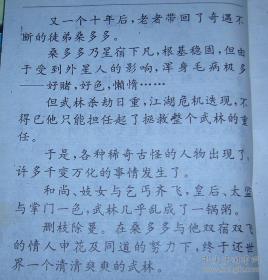 又一个十年后，老者带回了奇遇不
断的徒弟桑多多。
桑多多乃星宿下凡，根基稳固，但由
于受到外星人的影响，浑身毛病极多
——好赌，好色，懒惰……
但武林杀劫日重，江湖危机迭现，不
得已他只能担任起了拯救整个武林的重
任。
于是，各种稀奇古怪的人物出现了，
许多千变万化的事情发生了。
和尚、妓女与乞丐齐飞，皇后、太监
与掌门一色，武林几乎乱成了一锅粥。
删枝除蔓。在桑多多与他双宿双飞
的情人申花及同道的努力下，终于还世
界一个清清爽爽的武林。